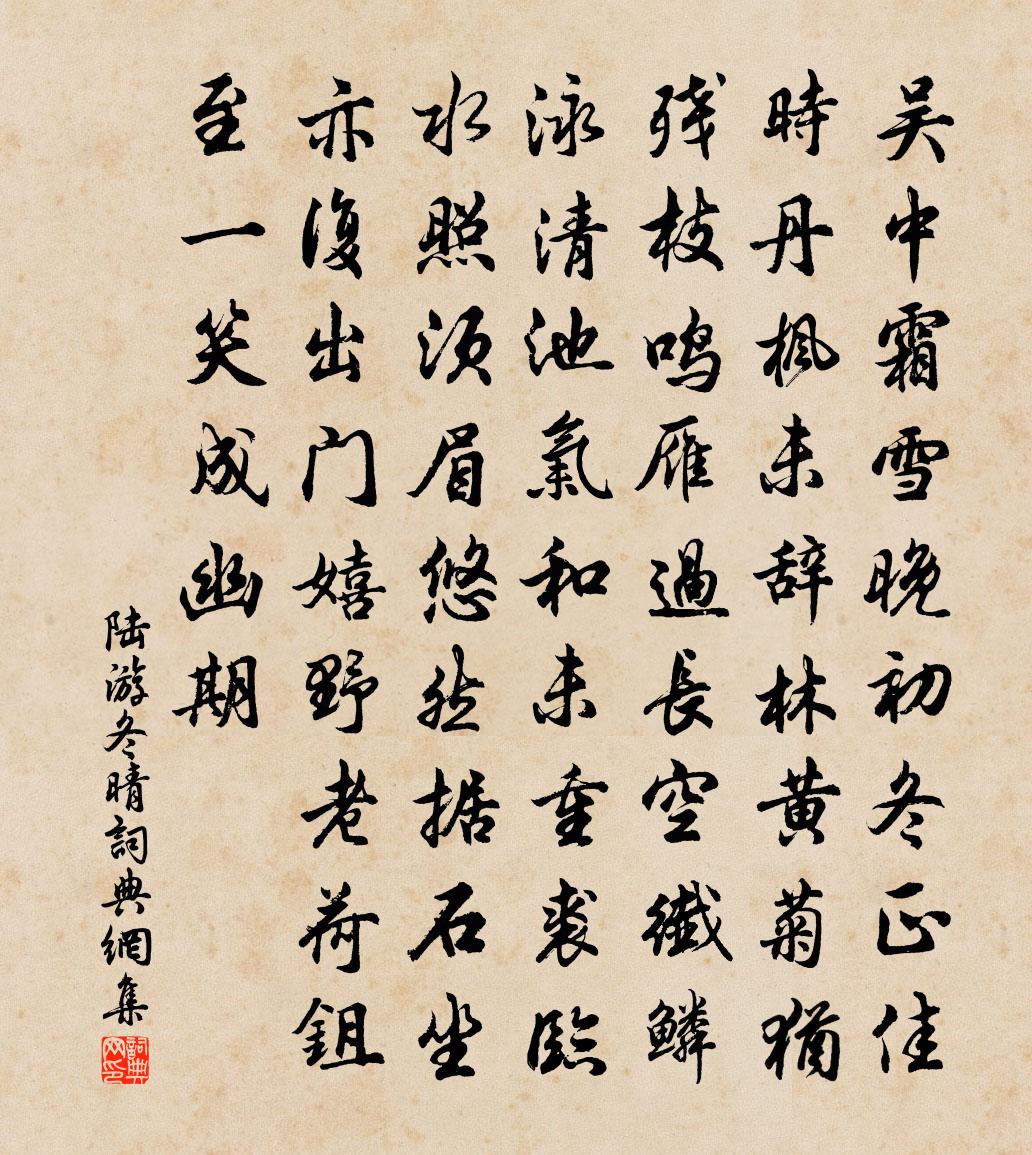 吴中霜雪晚初冬正佳
時丹枫未辞林黄菊猶
残枝鸣雁過長空纖鳞
泳清池氣和未重裘臨
水照须眉悠然据石坐
亦復出门嬉野老荷鉏
至一笑成幽期
陆游冬晴詞典網集
詞典
网印